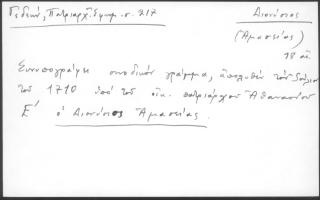 Γεδεών, Πατριαρχ. Εφημ. σ. 217
Διονύσιος
(Αμασείας)
18 αι.
Συνυπογράφει συνοδικόν γράμμα, απολυθέν τον Ιούλιον
του 1710 υπό του οικ. πατριάρχου Αθανασίου
Ε΄ ο Διονύσιος Αμασείας.